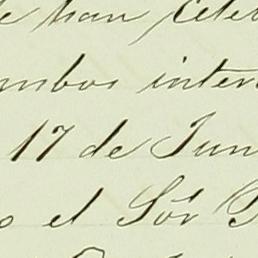 e han cele
mbos inter
17 de Jun
o el Sór